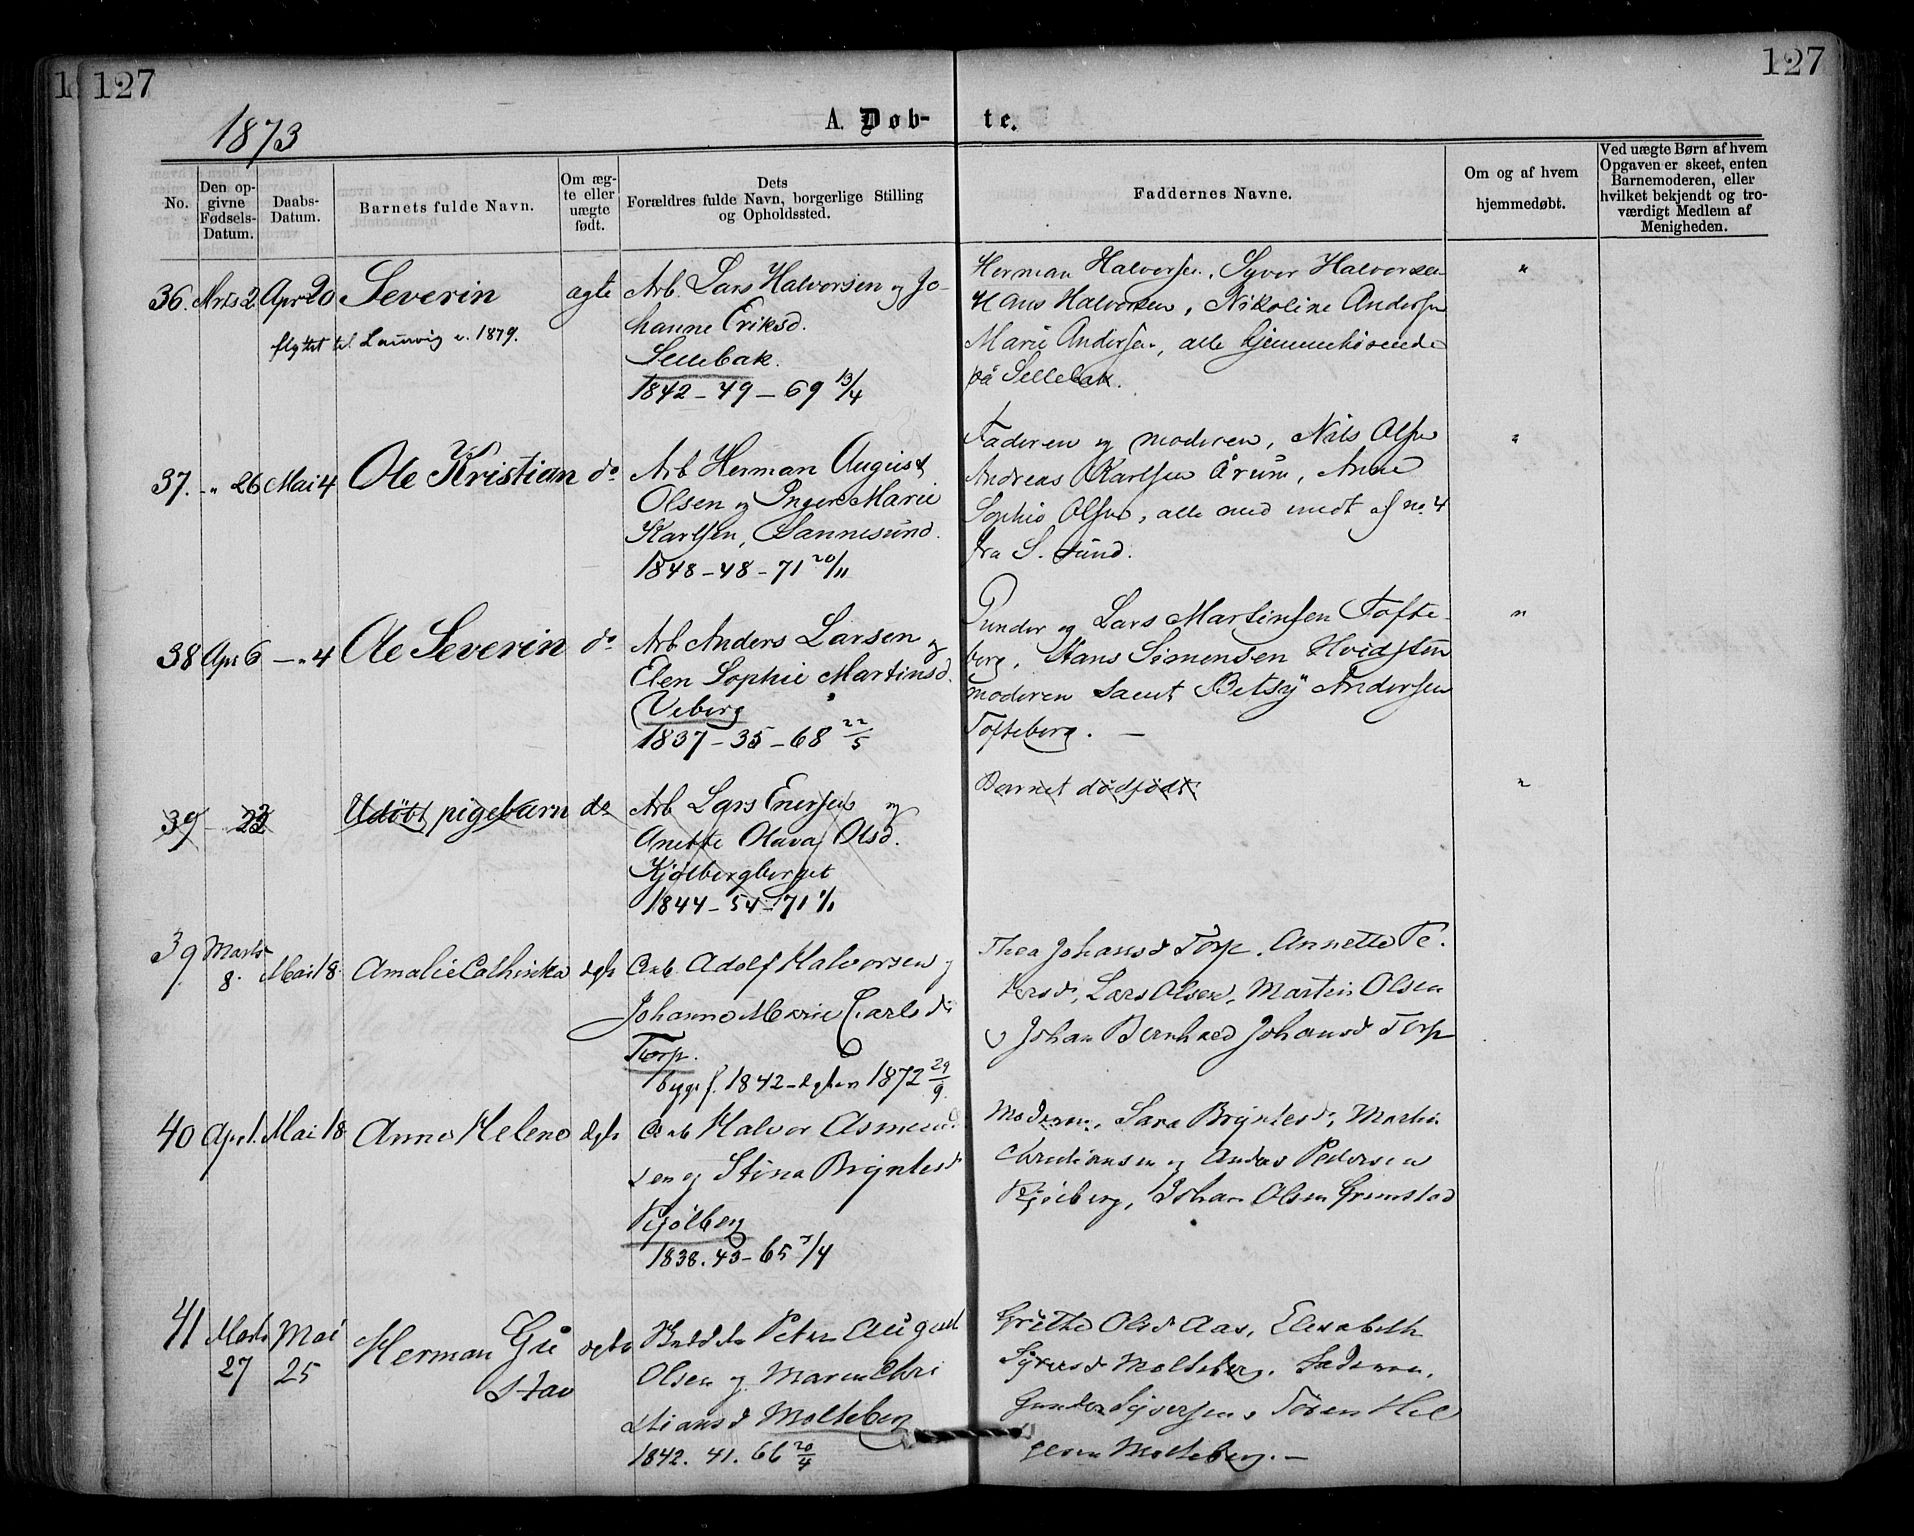 127
127
1873
A. Døb- te.
No.
Den op-
givne
Fødsels-
Datum.
Daabs-
Datum.
Barnets fulde Navn.
Om æg-
te eller
uægte
født.
Dets
Forældres fulde Navn, borgerlige Stilling
og Opholdssted.
Faddernes Navne.
Om og af hvem
hjemmedøbt.
Ved uægte Børn af hvem
Opgaven er skeet, enten
Barnemoderen, eller
hvilket bekjendt og tro-
værdigt Medlem af
Menigheden.
36. Mrts 2 Apr 20 Severin ægte
flyttet til Laurvig 1879.
Arb. Lars Halvorsen og Jo-
hanne Eriksd.
Sellebak.
1842 - 49 - 69 13/4
Herman Halvorsen, Syver Halvorsen
Hans Halvorsen, Nikoline Andersen
Marie Andersen, alle hjemmehørende
på Sellebak.
"
37. -"- 26 Mai 4 Ole Kristian do
Arb Herman August
Olsen og Inger Marie
Karlsen, Sannesund.
1848 - 48 - 71 20/11
Faderen og moderen, Nils Olsen
Andreas Karlsen Årum, Anne
Sophie Olsen, alle med undt af no. 4
fra S. sund.
"
38 Apr 6 -"- 4 Ole Severin do
Arb Anders Larsen og
Elen Sophie Martinsd.
Veberg
1837 - 35 - 68 22/5
Gunder og Lars Martinsen Tofte-
berg, Hans Simensen Hvidsten
moderen samt Betsy Andersen
Tofteberg. -
"
39 22 Udøbt pigebarn do
Arb Lars Enersen og
Anette Olava Olsd.
Kjølbergberget
1844 - 54 - 71 1/11
Barnet dødfødt
"
39 Marts
8. Mai 18. Amalie Cathinka ægte
Arb. Adolf Halvorsen og
Johanne Marie Carlsd
Torp.
1842 1872 29/9.
Thea Johannsd Torp, Annette Pe-
dersd, Lars Olsen, Martin Olsen
og Johan Bernhard Johansd Torp
40 Apr 1. Mai 18 Anne Helene ægte
Arb Halvor Asmund
sen og Stina Bryntesd
Kjølberg
1838. 43 - 65 /4
Moderen, Sara Bryntesd, Martin
Christiansen og Anders Pedersen
Kjølberg, Johan Olsen Grimstad
41 Marts
27 Mai
25 Herman Gu
stav ægte
Peter August
Olsen og Maren Chri
stiansd Molteberg
1842. 41. 66 20/4
Grethe Olsd Aas, Elisabeth
Syversd Molteberg, Faderen,
Gunder Syversen, Søren Hel
gesen Molteberg. -